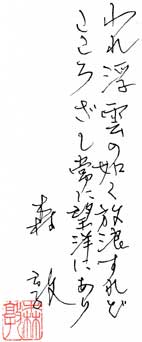 われ浮雲の如く放浪すれど
こころざし常に望洋にあり
森敦
森敦